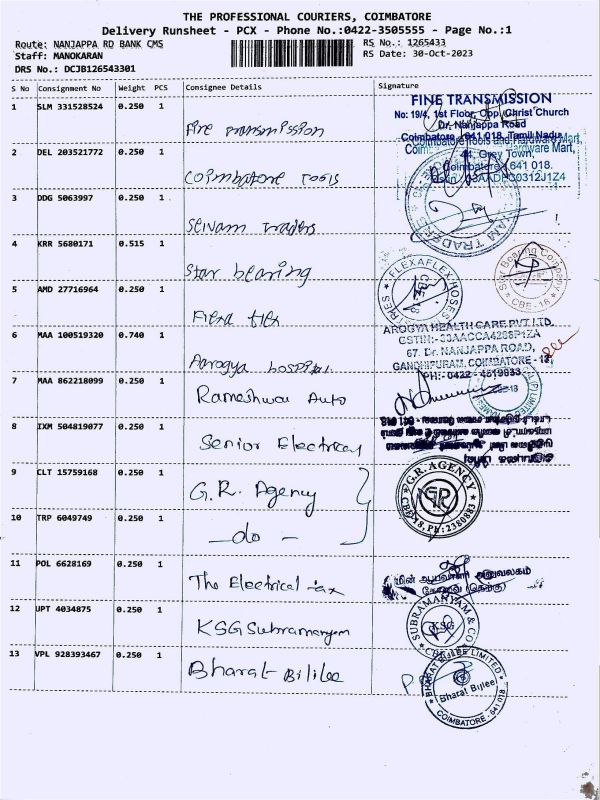 THE PROFESSIONAL COURIERS, COIMBATORE
Delivery Runsheet - PCX - Phone No.:0422-3505555 - Page No.:1
Route: NANJAPPA RD BANK CMS
RS No.: 1265433
Staff: MANOKARAN
RS Date: 30-Oct-2023
DRS No.: DCJB126543301
S No Consignment No Weight PCS Consignee Details Signature
1 SLM 331528524 0.250 1
Fire transmission
FINE TRANSMISSION
No: 19/4, 1st Floor, Opp. Christ Church
Dr. Nanjappa Road
Coimbatore - 641 018. Tamil Nadu
2 DEL 203521772 0.250 1
Coimbatore Tools
Coimbatore Tools and Hardware Mart,
Grey Town,
Coimbatore 641 018.
3 DDG 5063997 0.250 1
Selvam traders
4 KRR 5680171 0.515 1
Star bearing
Star Bearing Company
CBE - 18
5 AMD 27716964 0.250 1
Flexa flex
FLEXAFLEX HOSES
CBE - 18
6 MAA 100519320 0.740 1
Aarogya hospital
AROGYA HEALTH CARE PVT LTD.
67, Dr. NANJAPPA ROAD,
GANDHIPURAM, COIMBATORE - 18
PH:- 0422 - 4519833
7 MAA 862218099 0.250 1
Rameshwar Auto
8 IXM 504819077 0.250 1
Senior Electrical
9 CLT 15759168 0.250 1
G.R. Agency
G.R. AGENCY
GR
CBE-18, Ph: 2380883
10 TRP 6049749 0.250 1
- do -
11 POL 6628169 0.250 1
The Electrical tax
மின் ஆய்வாளர் அலுவலகம்
கோவை (தெற்கு)
12 UPT 4034875 0.250 1
KSG Subramanyam
SUBRAMANYAM & CO
KSG
13 VPL 928393467 0.250 1
Bharat Bijlee
BHARAT BIJLEE LIMITED
Bharat Bijlee
COIMBATORE - 641 018